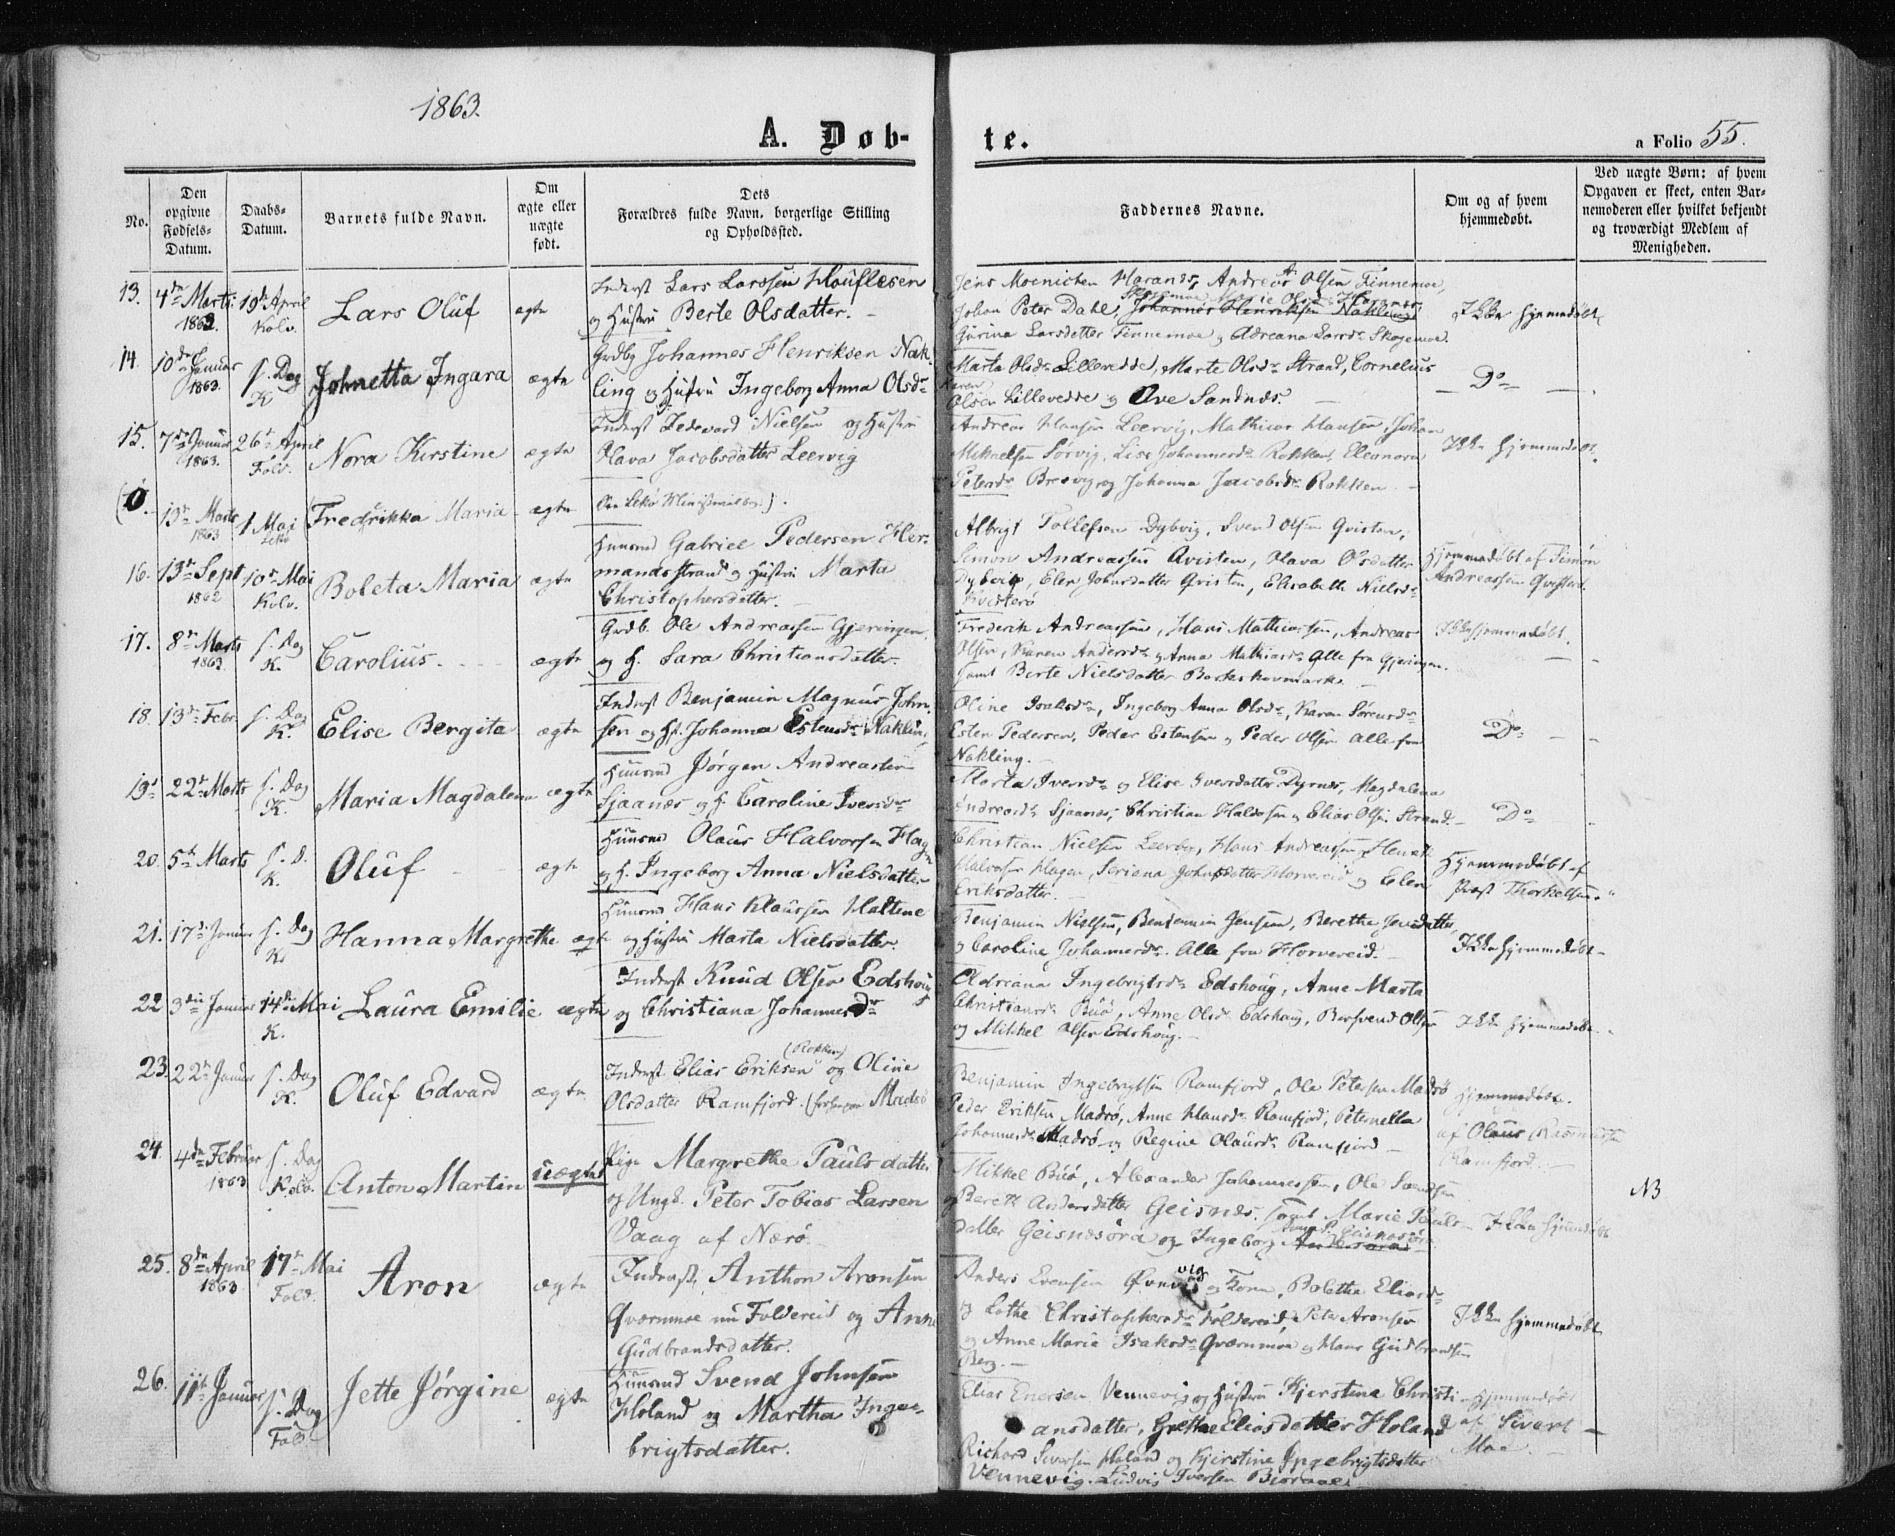 1863.
A. Døb-
te.
a Folio 55.
No.
Den
opgivne
Fødsels-
Datum.
Daabs-
Datum.
Barnets fulde Navn.
Om
ægte eller
uægte
født.
Dets
Forældres fulde Navn, borgerlige Stilling
og Opholdssted.
Faddernes Navne.
Om og af hvem
hjemmedøbt.
Ved uægte Børn: af hvem
Opgaven er skeet, enten Bar-
nemoderen eller hvilket bekjendt
og troværdigt Medlem af
Menigheden.
13. 4de Marts 19de April
Lars Oluf ægte
Inderst Lars Larssen
og Hustru Berte Olsdatter.
Jens Moenichen Andreas Olsen Finnemoe,
Johan Peter Dahl, Johannes Henriksen Nakling
Gurina Larsdetter Finnemoe og Adreana Larsdr Skogemoe.
Ikke hjemmedøbt
14. 10de Januar 1863. s. Dag K.
Johnetta Ingara ægte
Grdbg Johannes Henriksen Nak-
ling og Hustru Ingeborg Anna Olsdr
Marta Olsdr Lillevedde, Marte Olsdr Strand, Cornelius
Olsen Lillevedde og Ove Sandnæs.
Do
15. 7de Januar 1863. 26de April Fold.
Nora Kirstine ægte
Inderst Nielsen og Hustru
Olava Jacobsdatter Leervig
Andreas Hansen Leervig, Mathias Hansen, Johan
Mikaelsen Sørvig, Lise Johannesdr Rokken, Eleonora
Petersdr og Johanna Jacobsdr Rokken
Ikke hjemmedøbt.
(0. 19de Marts 1863 1 Mai Lekø
Fredrikka Maria ægte
16. 13de Sept 1862 10de Mai Kolv.
Boleta Maria ægte
Huusmd Gabriel Pedersen Her-
mandsstrand og Hustru Marta
Christophersdatter.
Albrigt Tollefsen Dybvig, Svend Olsen Qvisten,
Simon Andreassen Qvisten, Olava Olsdatter
Dybvig, Elen Johnsdatter Qvisten, Elisabeth Nielsdr
Hjemmedøbt af Simon
Andreassen
17. 8de Marts 1863. s. Dag K.
Carolius. ægte
Grdb. Ole Andreassen Gjeringen
og H. Sara Christiansdatter
Frederik Andreassen, Hans Mathiassen, Andreas
Olsen, Karen Andersdr og Anna Mathiasdr Alle fra Gjeringen.
samt Berte Nielsdatter
Ikke hjemmedøbt.
18. 13de Febr s. Dag K.
Elise Bergita ægte
Inderst Benjamin Magnus John-
sen og H. Johanna Estensdr Nakling
Oline Isaksdr, Ingeborg Anna Olsdr, Karen Sørensdr
Esten Pedersen, Peder Estensen og Peder Olsen alle fra
Nakling.
Do
19. 22de Marts s. Dag K.
Maria Magdalena ægte
Huusmd Jørgen Andreassen
Sjaanæs og H. Caroline Iversdr
Marta Iversdr og Elise Iversdatter Dyrnes, Magdalena
Andreasdr Sjaanæs, Christian Halvorsen og Elias Olsen Strand.
Do
20. 5te Marts s. D. K.
Oluf ægte
Huusmd Olaus Halvorsen Hagen
og H. Ingeborg Anna Nielsdatter
Christian Nielsen Hans Andreassen
Halvorsen Hagen, Seriana Johnsdatter Horvereid og Elen
Eriksdatter.
Hjemmedøbt af
Præst Thorkelsen
21. 17de Januar s. Dag K.
Hanna Margrethe ægte
Huusmd Hans Klaussen
og Hustru Marta Nielsdatter.
Benjamin Nielsen, Benjamin Jensen, Berethe Jensdatter
og Caroline Johannesdr. Alle fra Horvereid.
Ikke hjemmedøbt
22 3die Januar 14de Mai K.
Laura Emilie ægte
Inderst Knud Olsen Edshoug
og Christiana Johannesdr
Adriana Ingebrigtsdr Edshoug, Anne Marta
Christiansdr Buø, Anne Olsdr Edshaug, Bersvend Olsen
og Mikkel Olsen Edshoug.
Ikke hjemmedøbt.
23. 22de Januar s. Dag K.
Oluf Edvard ægte
Inderst Elias Eriksen (Rokken) og Oline
Olsdatter Ramfjord.
Benjamin Ingebrigtsen Ramfjord, Ole Petersen Madsø
Peder Eriksen Madsø, Anne Hansdr Ramfjord, Peternella
Johannesdr Madsø og Regine Olausdr Ramfjord
Hjemmedøbt.
af Olaus Rasmussen
Ramfjord.
24. 4de Februar 1863 s. Dag Kolv.
Anton Martin uægte
Pige Margrethe Paulsdatter
og Ungk. Peter Tobias Larsen
Vaag af Nærø.
Mikkel Buø, Alexander Johannessen, Ole Svendsen
Berett Andersdatter Geisnæs. samt Marie Pauls-
datter Geisnæsøra og Ingeborg
Ikke hjemmedøbt
NB
25. 8de April 1863 17de Mai Fold.
Aron ægte
Inderst, Anthon Aronsen
Qværnmoe nu Foldereid og Anne
Gudbrandsdatter.
Anders Evensen og Kone, Boletha Eliasdr
og Lothe Christophersdr Foldereid, Peter Aronsen
og Anne Marie Isaksdr Qværnmoe og Hans Gudbrandsen
Berg.
Ikke hjemmedøbt
26. 11te Januar s. Dag Fold.
Jette Jørgine ægte
Huusmd Svend Johnsen
Høland og Martha Inge-
brigtsdatter.
Elias Enersen Vennevig og Hustru Kjerstina Christi-
ansdatter, Grethe Eliasdatter Høland
Richard Siversen Høland og Kjerstine Ingebrigtsdatter
Vennevig. Ludvig Iversen
Hjemmedøbt
af Sivert
Moe